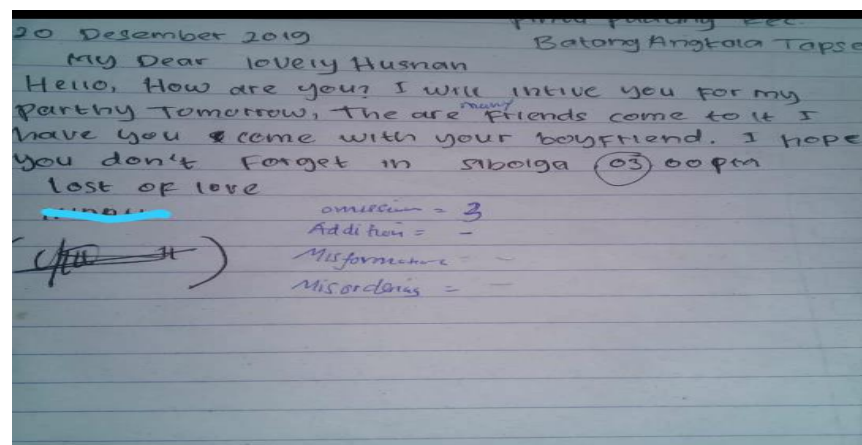 20 Desember 2019
Batang Angkola Tapse
My Dear lovely Husnan
Hello, How are you? I will intive you for my
Parthy Tomorrow, The are many Friends come to it I
have you come with your boyfriend. I hope
you don't Forget in sibolga 03 00 pm
Lost of love
omission = 3
Addition = -
Misformation = -
Misordering = -